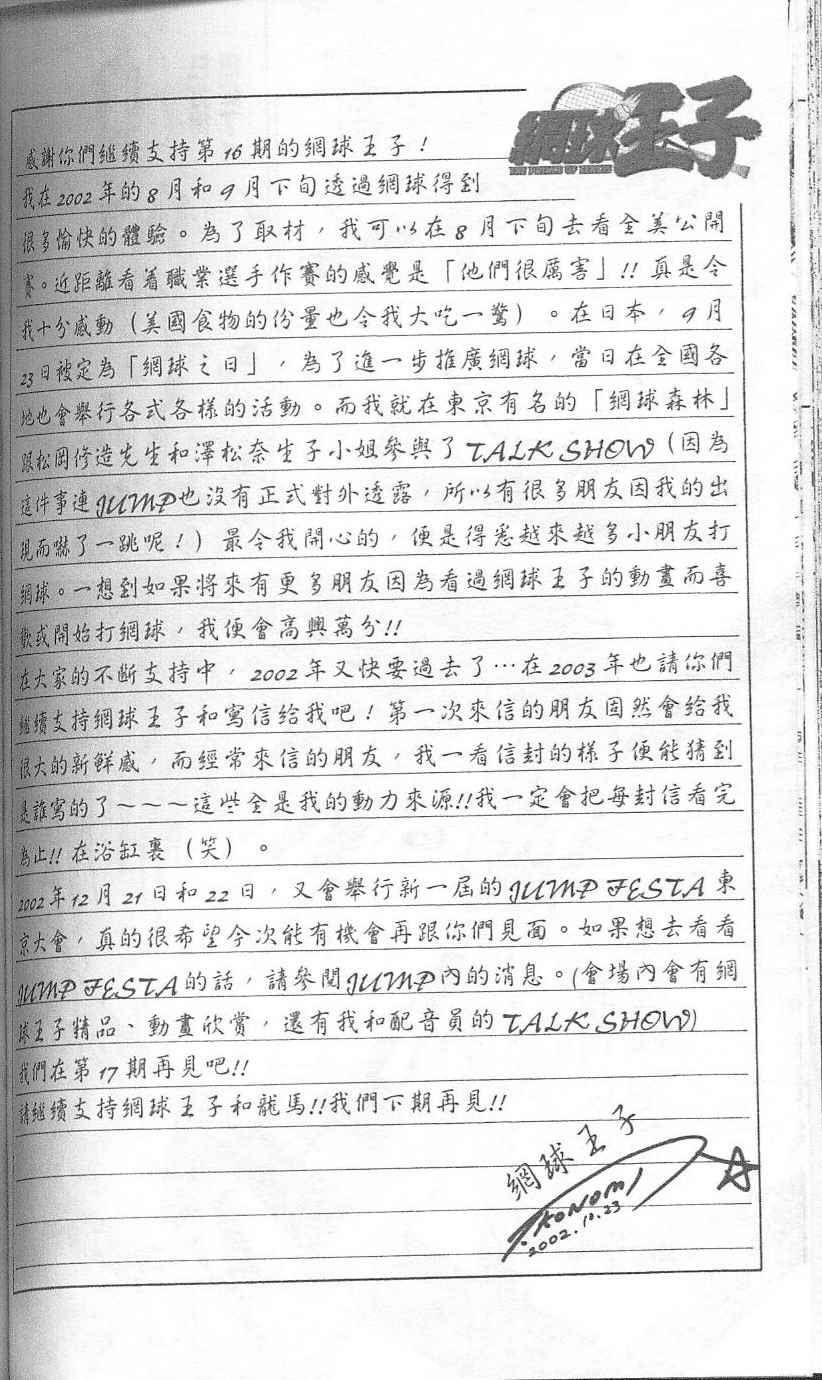 網球王子
THE PRINCE OF TENNIS
感謝你們繼續支持第16期的網球王子！
我在2002年的8月和9月下旬透過網球得到
很多愉快的體驗。為了取材，我可以在8月下旬去看全美公開
賽。近距離看着職業選手作賽的感覺是「他們很厲害」!!真是令
我十分感動（美國食物的份量也令我大吃一驚）。在日本，9月
23日被定為「網球之日」，為了進一步推廣網球，當日在全國各
地也會舉行各式各樣的活動。而我就在東京有名的「網球森林」
跟松岡修造先生和澤松奈生子小姐參與了TALK SHOW（因為
這件事連JUMP也沒有正式對外透露，所以有很多朋友因我的出
現而嚇了一跳呢！）最令我開心的，便是得悉越來越多小朋友打
網球。一想到如果將來有更多朋友因為看過網球王子的動畫而喜
歡或開始打網球，我便會高興萬分!!
在大家的不斷支持中，2002年又快要過去了…在2003年也請你們
繼續支持網球王子和寫信給我吧！第一次來信的朋友固然會給我
很大的新鮮感，而經常來信的朋友，我一看信封的樣子便能猜到
是誰寫的了～～～這些全是我的動力來源!!我一定會把每封信看完
為止!!在浴缸裏（笑）。
2002年12月21日和22日，又會舉行新一屆的JUMP FESTA東
京大會，真的很希望今次能有機會再跟你們見面。如果想去看看
JUMP FESTA的話，請參閱JUMP內的消息。(會場內會有網
球王子精品、動畫欣賞，還有我和配音員的TALK SHOW)
我們在第17期再見吧!!
請繼續支持網球王子和龍馬!!我們下期再見!!
網球王子
KONOMI
2002.10.23